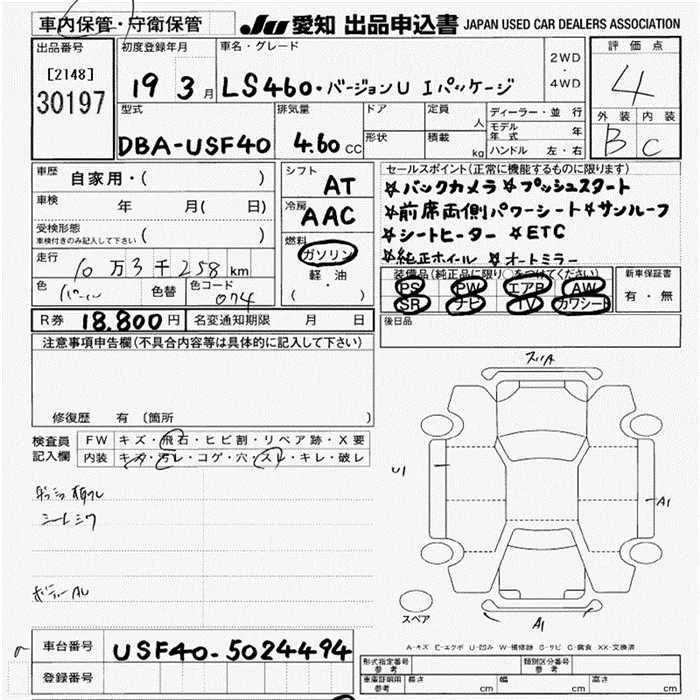 車内保管・守衛保管
JU 愛知 出品申込書 JAPAN USED CAR DEALERS ASSOCIATION
出品番号
[2148]
30197
初度登録年月
19 3月
車名・グレード
LS460・バージョンU Iパッケージ
2WD
・
4WD
評価点
4
外装 内装
B C
型式
DBA-USF40
排気量
4.60 CC
ドア
形状
定員
人
積載
kg
ディーラー・並行
モデル年式 年
ハンドル 左・右
車歴 自家用・( )
車検 年 月( 日)
受検形態
車検付きのみ記入して下さい ( )
走行 10万3千258km
色 パール 色替 色コード 074
シフト
AT
冷房
AAC
燃料
ガソリン
軽油
( ・ )
セールスポイント(正常に機能するものに限ります)
☆バックカメラ ☆プッシュスタート
☆前席両側パワーシート☆サンルーフ
☆シートヒーター ☆ETC
☆純正ホイール ☆オートミラー
装備品(純正品に限り○をつけてください)
PS PW エアB AW
SR ナビ TV カワシート
新車保証書
有・無
R券 18,800円 名変通知期限 月 日
後日品
注意事項申告欄(不具合内容等は具体的に記入して下さい)
修復歴 有 (箇所
検査員
記入欄
FW キズ・飛石・ヒビ割・リペア跡・X要
内装 キズ・汚レ・コゲ・穴・スレ・キレ・破レ
シートシワ
スリA
U1
A1
A1
スペア
A-キズ E-エクボ U-凹み W-補修跡 S-サビ C-腐食 XX-交換済
車台番号 USF40-5024494
登録番号
形式指定番号
参考
類別区分番号
参考
車庫証明用
参考
長さ cm 幅 cm 高さ cm